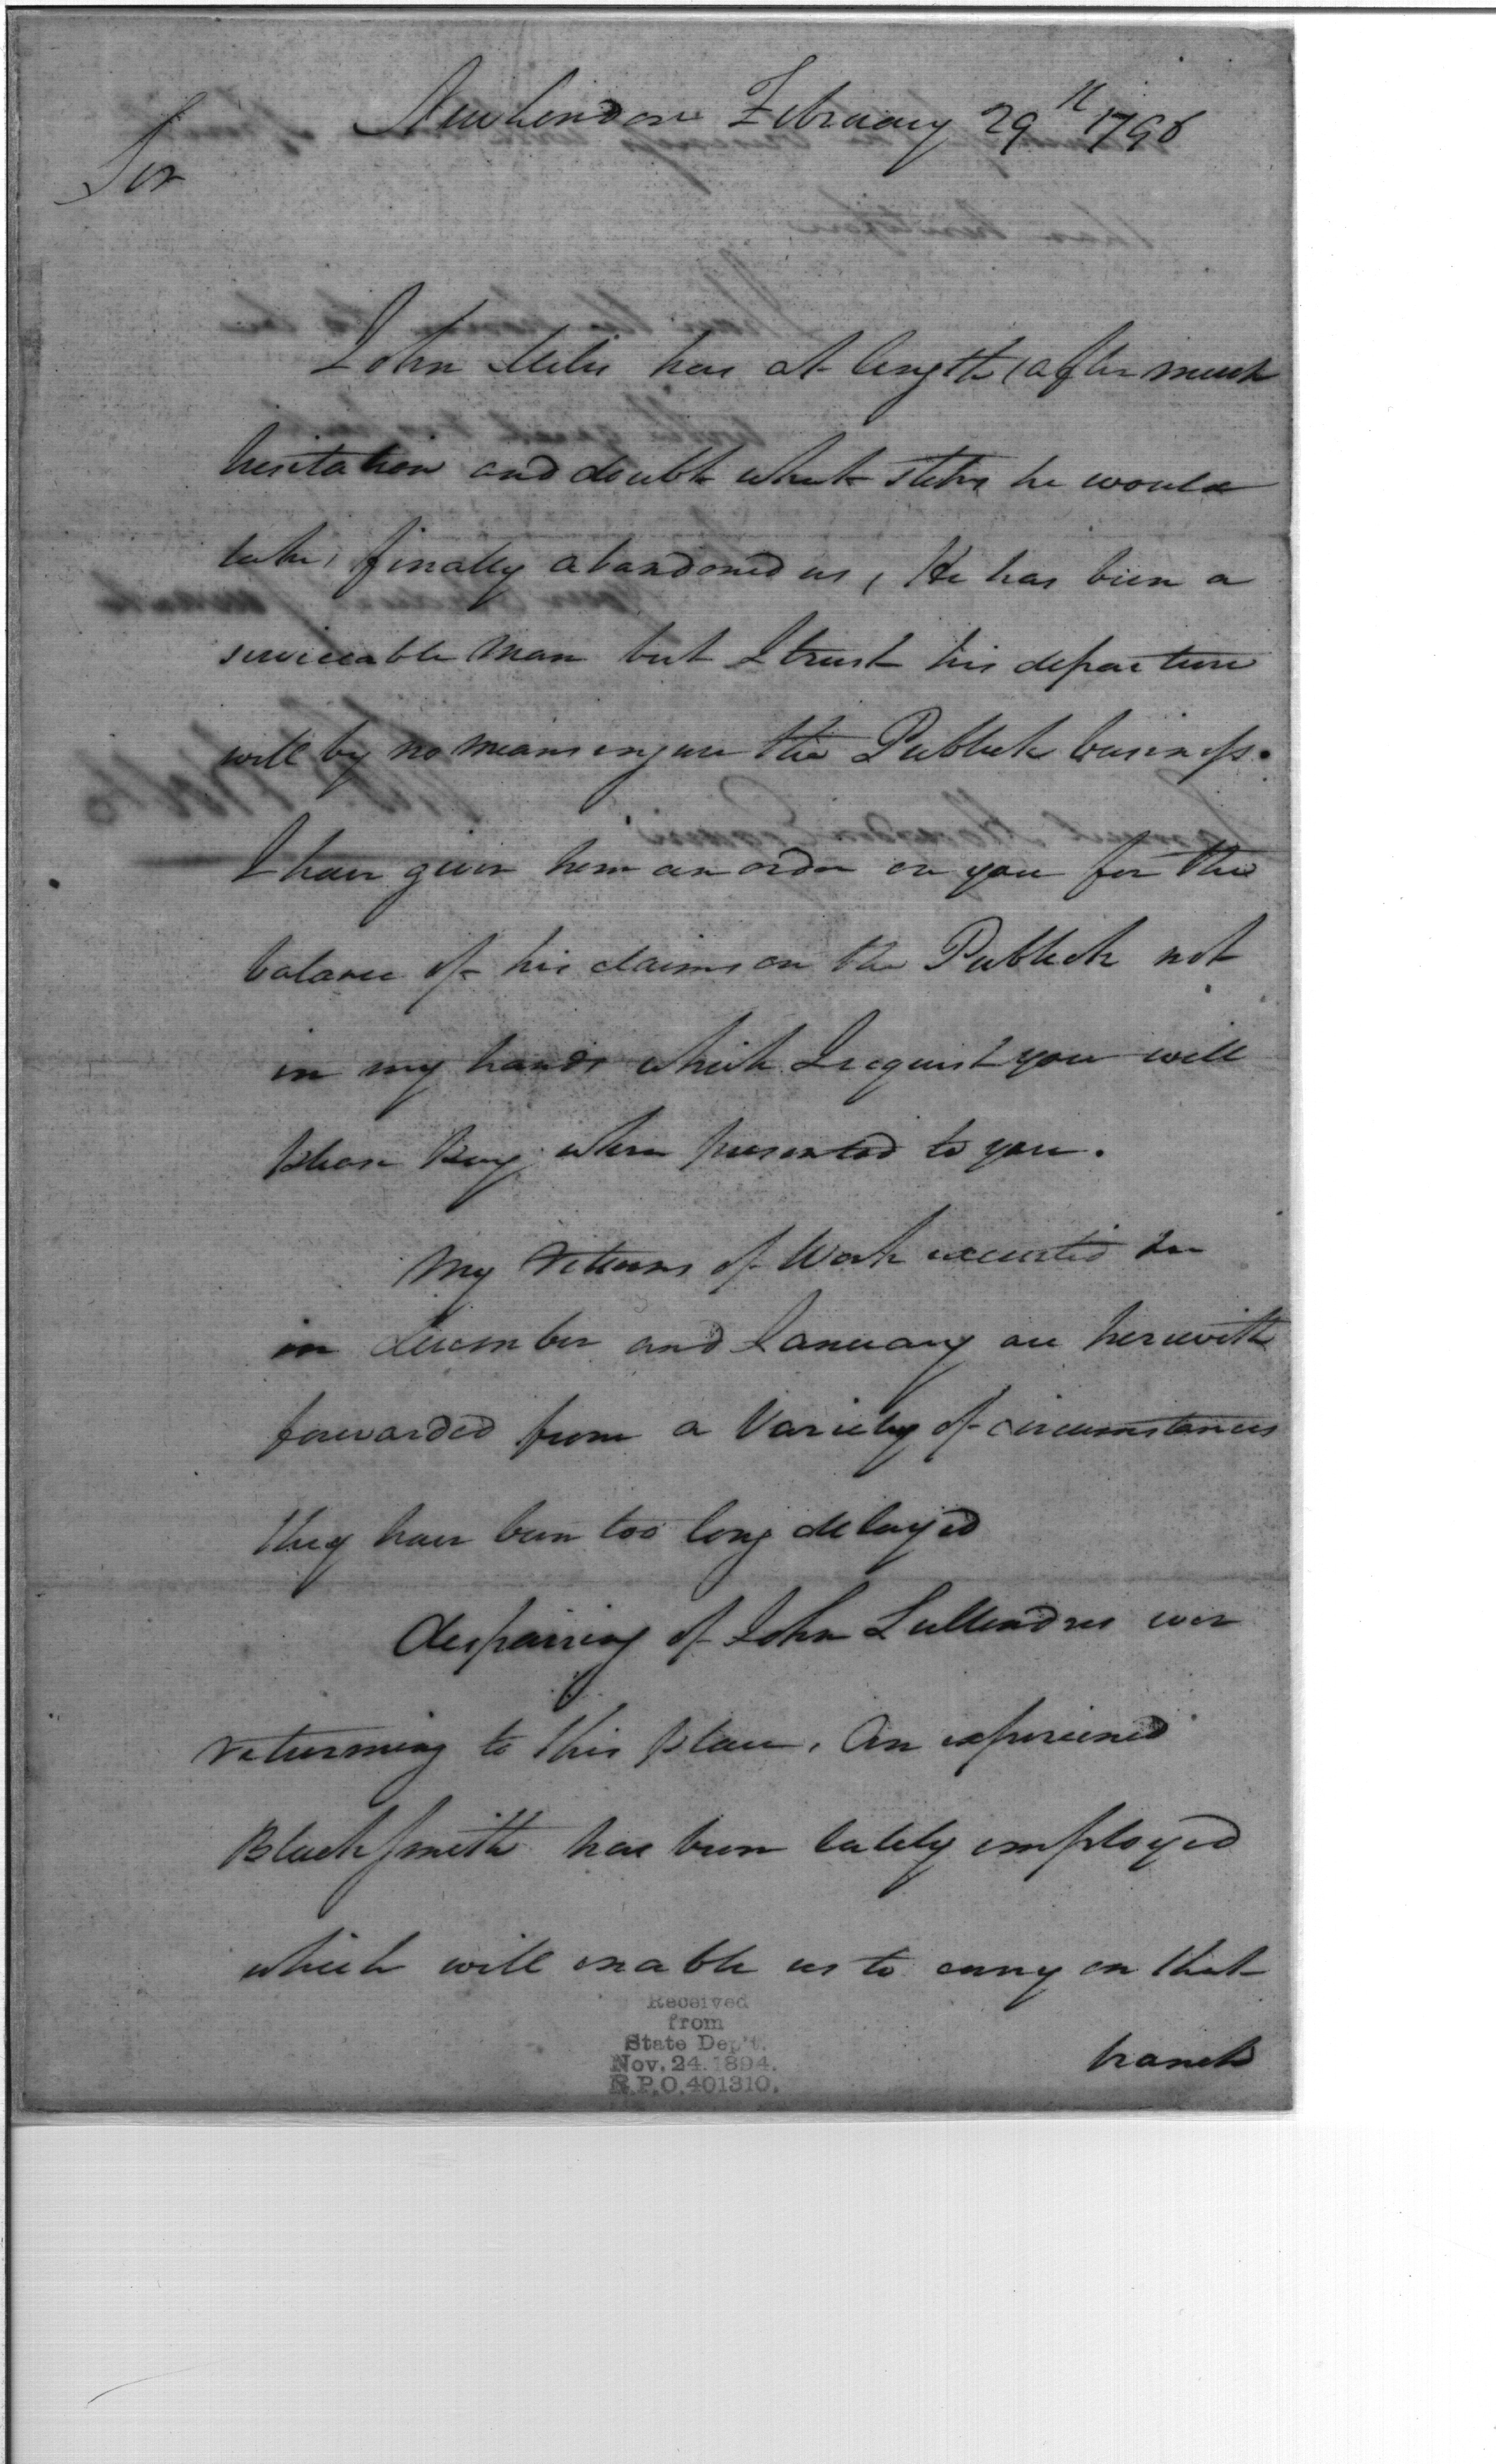 New London February 29th 1796
Sir
John Miles has at length (after much
hesitation and doubt what steps he would
take, finally abandoned us, He has bien a
serviceable man but I trust his departure
will by no means injure the Publick business.
I have given him an order on you for the
balance of his claims on the Publick not
in my hands which I request you will
please Pay when presented to you.
My returns of Work executed
in december and January are herewith
forwarded from a Variety of circumstances
they have been too long delayed
despairing of John ever
returning to this place, An experienced
Blacksmith has been lately employed
which will enable us to carry on that
branch
Received
from
State Dep't.
Nov. 24. 1894.
R.P.O. 401310.